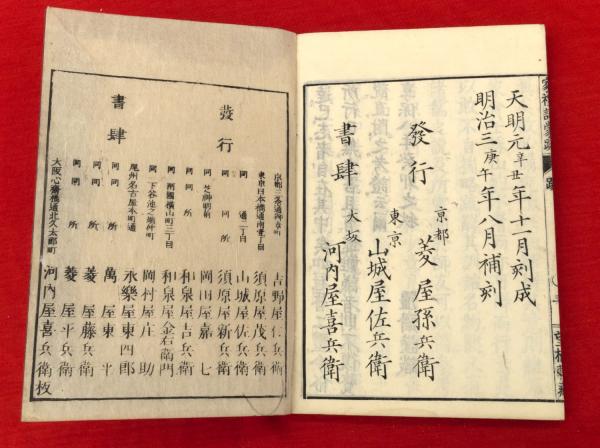 天明元辛丑年十一月刻成
明治三庚午年八月補刻
發行
書肆
京都
菱屋孫兵衛
東京
山城屋佐兵衛
大坂
河内屋喜兵衛
發行
書肆
京都三条通
吉野屋仁兵衛
東京日本橋通南壹丁目
須原屋茂兵衛
同 通二丁目
山城屋佐兵衛
同 同所
須原屋新兵衛
同 芝神明前
岡田屋嘉七
同 同所
和泉屋吉兵衛
同 兩國横山町三丁目
和泉屋金右衛門
同 下谷池之端仲町
岡村屋庄助
尾州名古屋本町通
永樂屋東四郎
同 同所
萬屋東平
同 同所
菱屋藤兵衛
同 同所
菱屋平兵衛
大阪心齋橋通北久太郎町
河内屋喜兵衛板